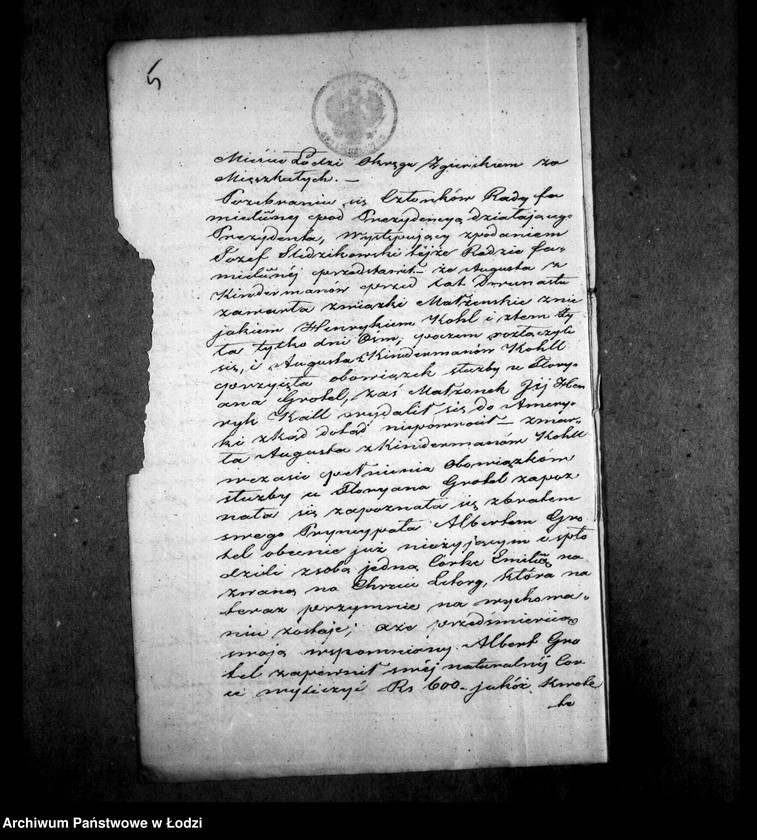 5
Mieście Łodzi Okręgu Zgierskiem za
Mieszkałych. —
Pozebraniu się Członków Rady fa
mielijnej pod Prezydencyą działającego
Prezydenta, Występujący zpodaniem
Józef Sledzikowski tejże Radzie fa-
mielijnéj przedstawił — że Augusta z
Kindermanów przed lat Dwunastu
zawarła związki Małżenskie znie
jakiem Henrykiem Kohl i ztem ży
ła tylko dni Ośm, poczem rozłączyli
się, i Augusta z Kindermanów Kohll
przyjęła obowiązek służby u Flory-
ana Grotel, zaś Małżonek Jéj Hen
ryk Kall wydalił się do Amery-
ki zkąd dotąd niepowrócił — zmar-
ła Augusta zKindermanów Kohll
wczasie pełnienia Obowiązków
służby u Floryana Grotel zapoz
nała się zapoznała się zbratem
swego Pryncypała Albertem Gro-
tel obecnie już nieżyjącym i spło
dzili zsobą jedną Córkę Emiliią na
zwaną na Chrzcie Ś, która na
teraz przymnie na wychowa-
niu zostaje; aże przedśmiercią
swoją wspomniony Albert Gro
tel zapewnił swéj naturalnéj Cór-
ce wyliczyć Rs 600 — jakóż Kwotę
tę
Archiwum Państwowe w Łodzi